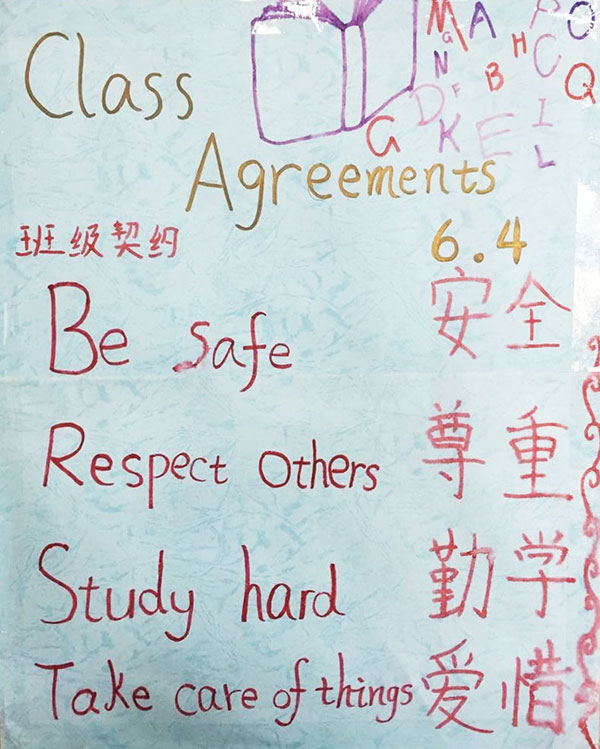 Class
Agreements
班级契约 6.4
Be safe 安全
Respect Others 尊重
Study hard 勤学
Take care of things 爱惜
M A P O
G H C
N B Q
F
D I
G K E L